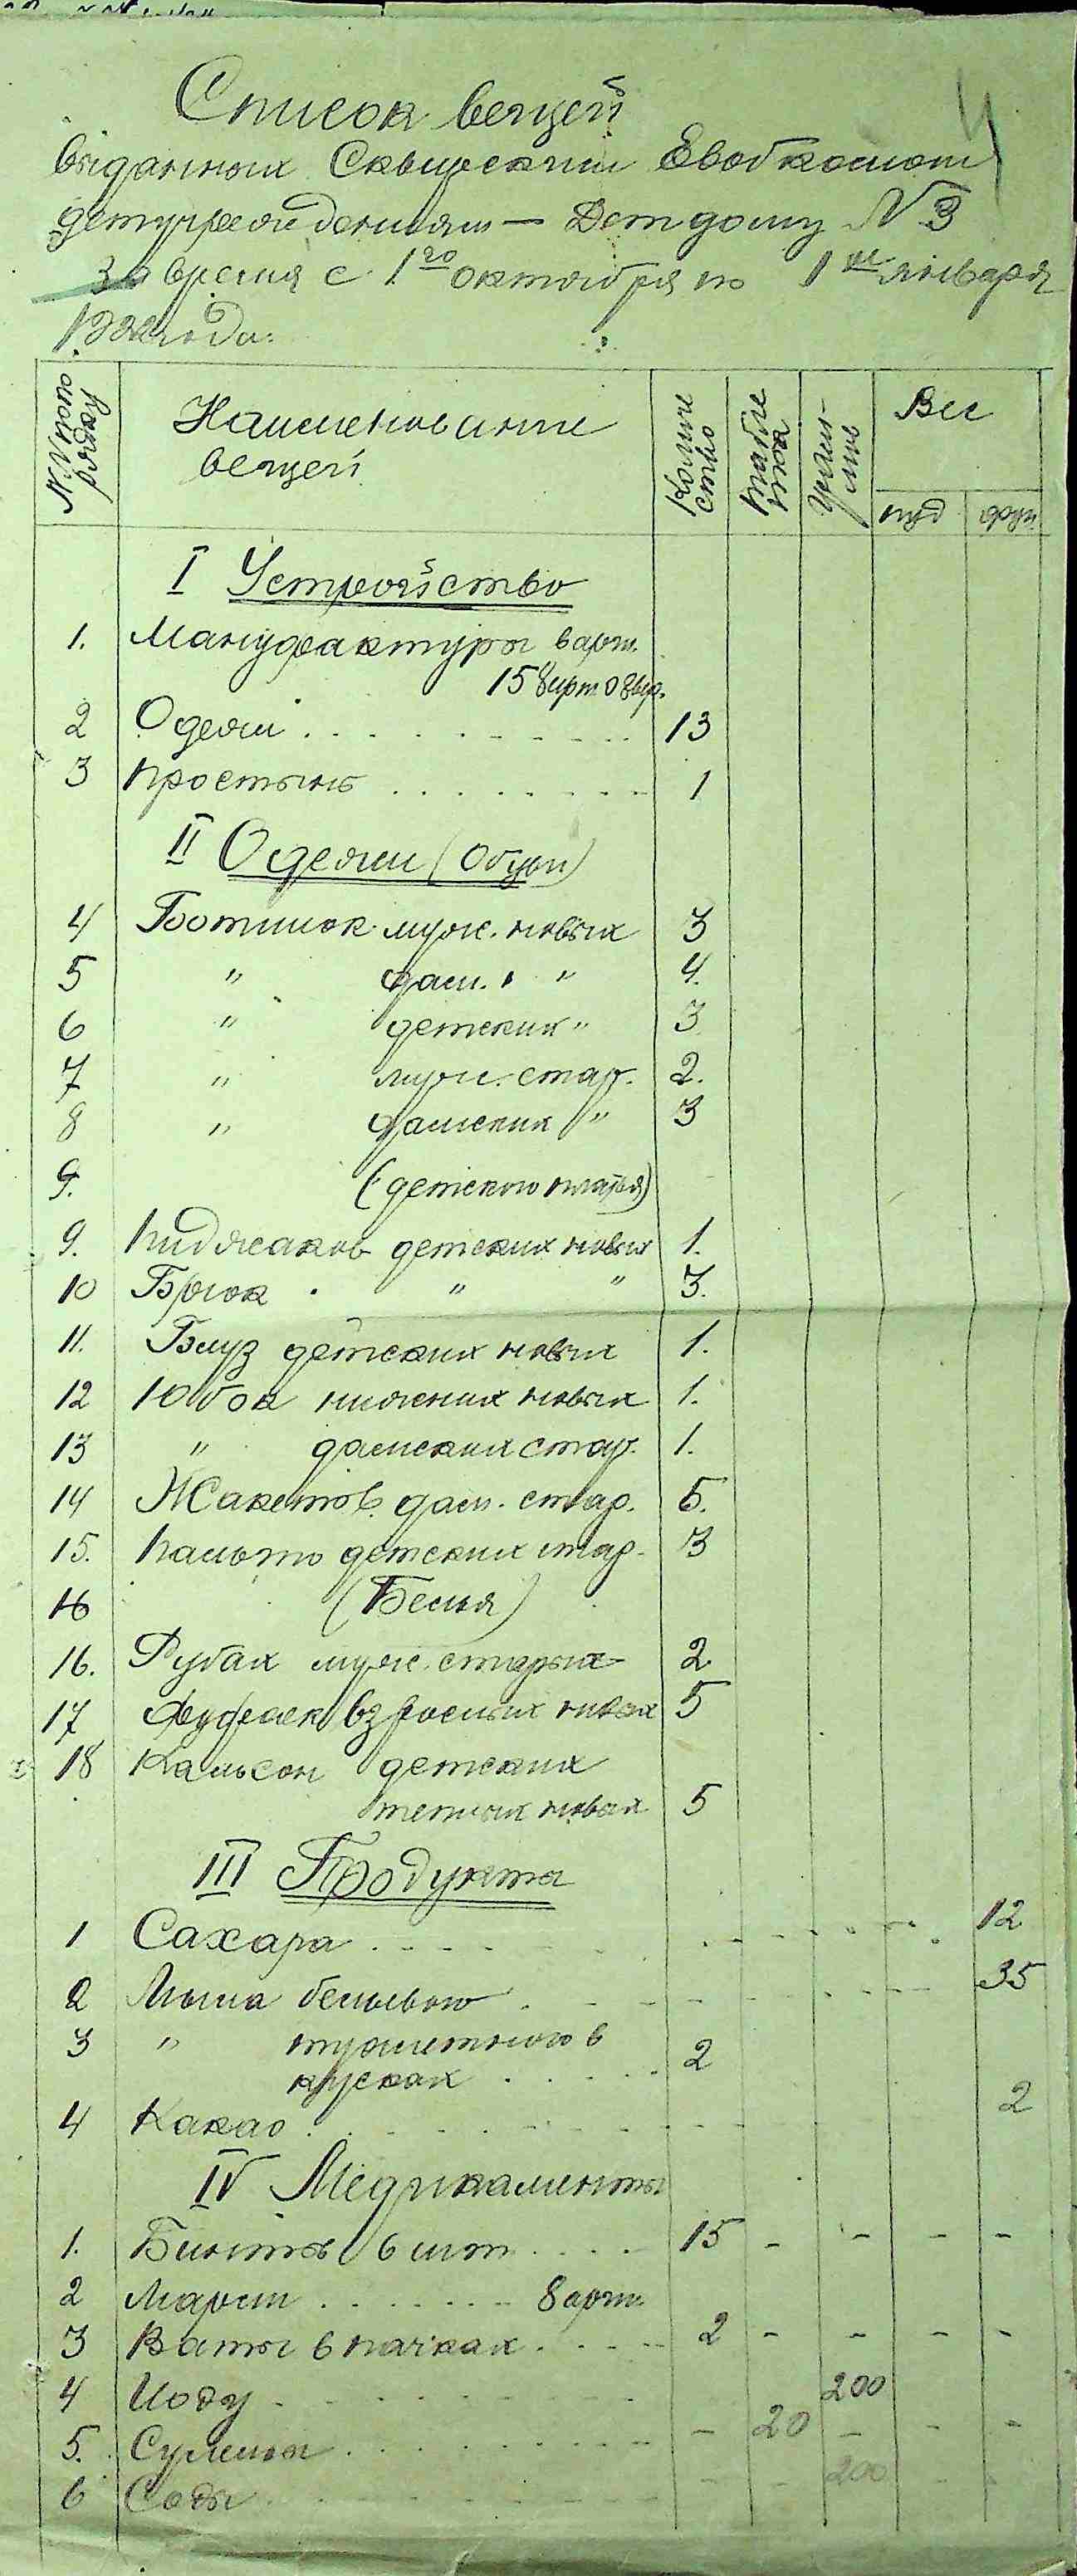 Список вещей
выданных Сквирским Евобкомом
детучреждениям — Детдому N 3
За время с 1го октября по 1ое января
192 года.
NN по порядку
Наименование вещей
Количество
Пуд
фун
Вес
I Устройство
1. Мануфактуры в арш.
15 арш. 0 вер.
2 Одеял 13
3 Простынь 1
II Одежи (Обуви)
4 Ботинок муж. новых 3
5 " дам. " 4.
6 " детских " 3
7 " муж. стар. 2.
8 " дамских " 3
9. (детского платья)
9. Пиджаков детских новых 1.
10 Брюк " " 3.
11. Блуз детских новых 1.
12 Юбок нижних новых 1.
13 " дамских стар. 1.
14 Жакетов дам. стар. 5.
15. Пальто детских стар. 3
16 (Белья)
16. Рубах муж. старых 2
17 Фуфаек взрослых новых 5
18 Кальсон детских
теплых новых 5
III Продукты
1 Сахара 12
2 Мыла бельевого 35
3 " туалетного в
кусках 2
4 Какао 2
IV Медикаменты
1. Бинтов в шт 15 - - - -
2 Марли 8 арш.
3 Ваты в пачках 2 - - - -
4 Иоду 200
5. Сулемы - 20 - - -
6 Соды 200